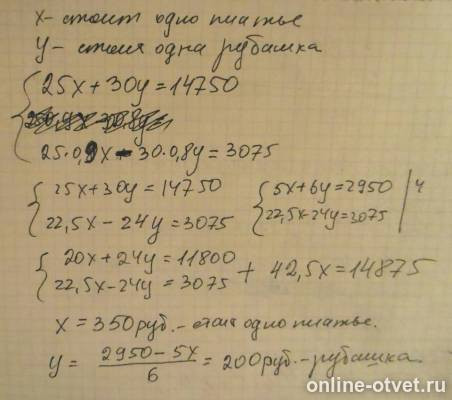 x - стоит одно платье
y - стоит одна рубашка
25x + 30y = 14750
25·0,9x - 30·0,8y = 3075
25x + 30y = 14750
22,5x - 24y = 3075
5x + 6y = 2950 | 4
22,5x - 24y = 3075
20x + 24y = 11800
22,5x - 24y = 3075
+ 42,5x = 14875
x = 350 руб. - стоит одно платье.
y = (2950 - 5x)/6 = 200 руб. - рубашка.
online-otvet.ru